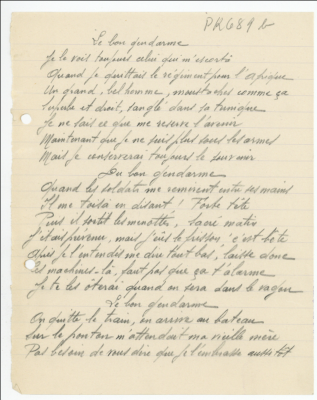 PR689b
Le bon gendarme
Je le vois toujours celui qui m'escorta
Quand je quittais le régiment pour l'afrique
Un grand, bel homme, moustaches comme ça
superbe et droit, sanglé dans sa tunique
Je ne sais ce que me reserve l'avenir
Maintenant que je ne suis plus sous les armes
Mais je conserverai toujours le souvenir
Du bon gendarme
Quand les soldats me remirent entre ses mains
Il me toisa en disant! Forte tête
Puis il sortit les menottes, sacré matin
J'étais prévenu, mais j'eus le frisson, c'est bête
Puis je l'entendis me dire tout bas, laisse donc
ces machines-là, faut pas que ça t'alarme
Je te les oterai quand on sera dans le wagon
Le bon gendarme
On quitte le train, on arrive au bateau
Sur le ponton m'attendait ma vieille mère
Pas besoin de vous dire que je l'embrasse aussitôt